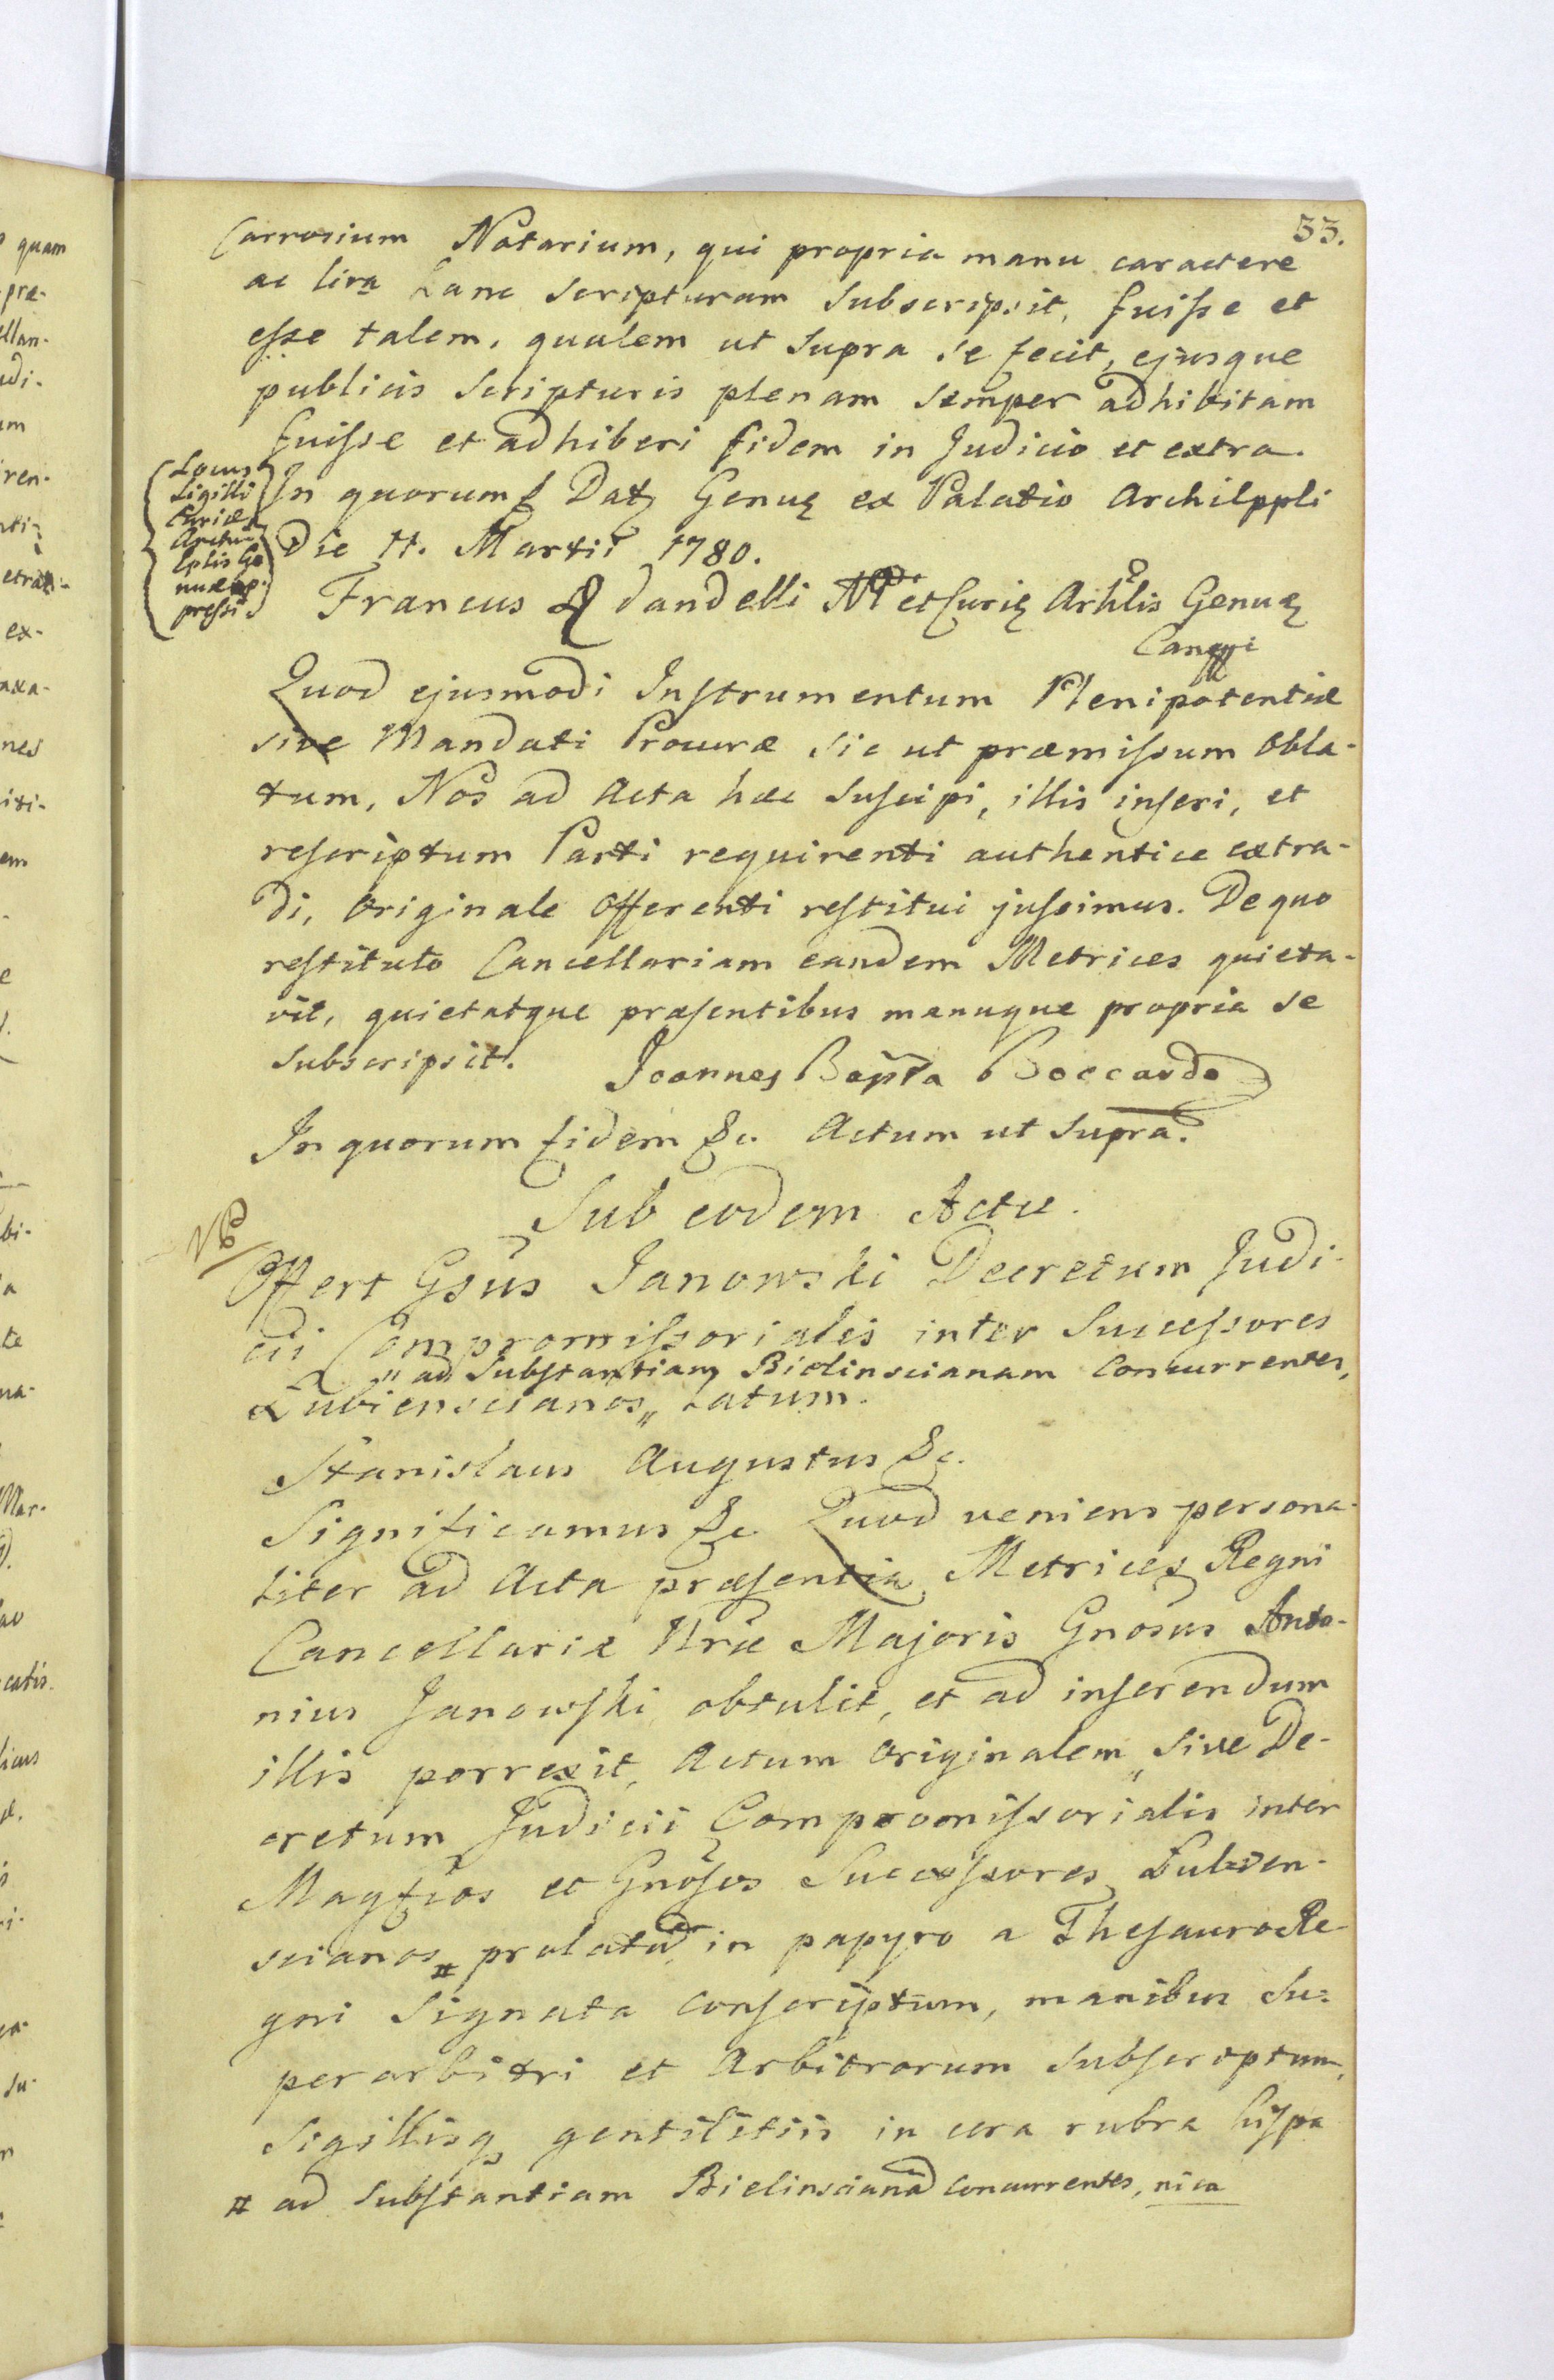 53.
Carrosium Notarium, qui propria manu caractere
ac lira hanc Scripturam Subscripsit, fuisse et
esse talem, qualem ut Supra se fecit, ejusque
publicis Scripturis plenam Semper adhibitam
fuisse et adhiberi fidem in Judicio et extra.
(Locus
Sigilli
Curiæ
Archie
Eplis Ge
nuæ ap
pressi)
In quorum f Dat Genuę ex Palatio Archieppli
Die 11. Martii 1780.
Francus dandelli et Curię Arhlis Genuę
Cancrr
Quod ejusmodi Instrumentum Plenipotentiæ
sive Mandati Procuræ Sic ut præmissum obla-
tum, Nos ad Acta hæc Suscipi, illis inseri, et
rescriptum Parti requirenti authentice extra-
di, Originale Offerenti restitui jussimus. De quo
restituto Cancellariam eandem Metrices quieta-
vit, quietatque præsentibus manuque propria se
Subscripsit. Joannes Bapta Boccardo
In quorum fidem &c. Actum ut Supra.
Sub eodem Actu.
NB
Offert Gsus Janowski Decretum Judi-
cii Compromissorialis inter Successores
" ad Substantiam Bielinscianam Concurrentes,
Łubienscianos " Latum.
Stanislaus Augustus &c.
Significamus &c. Quod veniens persona-
liter ad Acta præsentia Metrices Regni
Cancellariæ Nræ Majoris Gnosus Anto-
nius Janowski obtulit, et ad inserendum
illis porrexit, Actum Originalem, sive De-
cretum Judicii Compromissorialis inter
Magfcos et Gnosos Successores Łubien-
scianos # prolatum in papyro a Thesauro Re-
gni Signata conscriptum, manibus Su-
perarbitri et Arbitrorum Subscriptum,
Sigillisq gentilitiis in cera rubra hispa
# ad Substantiam Bielinscianã concurrentes, nica